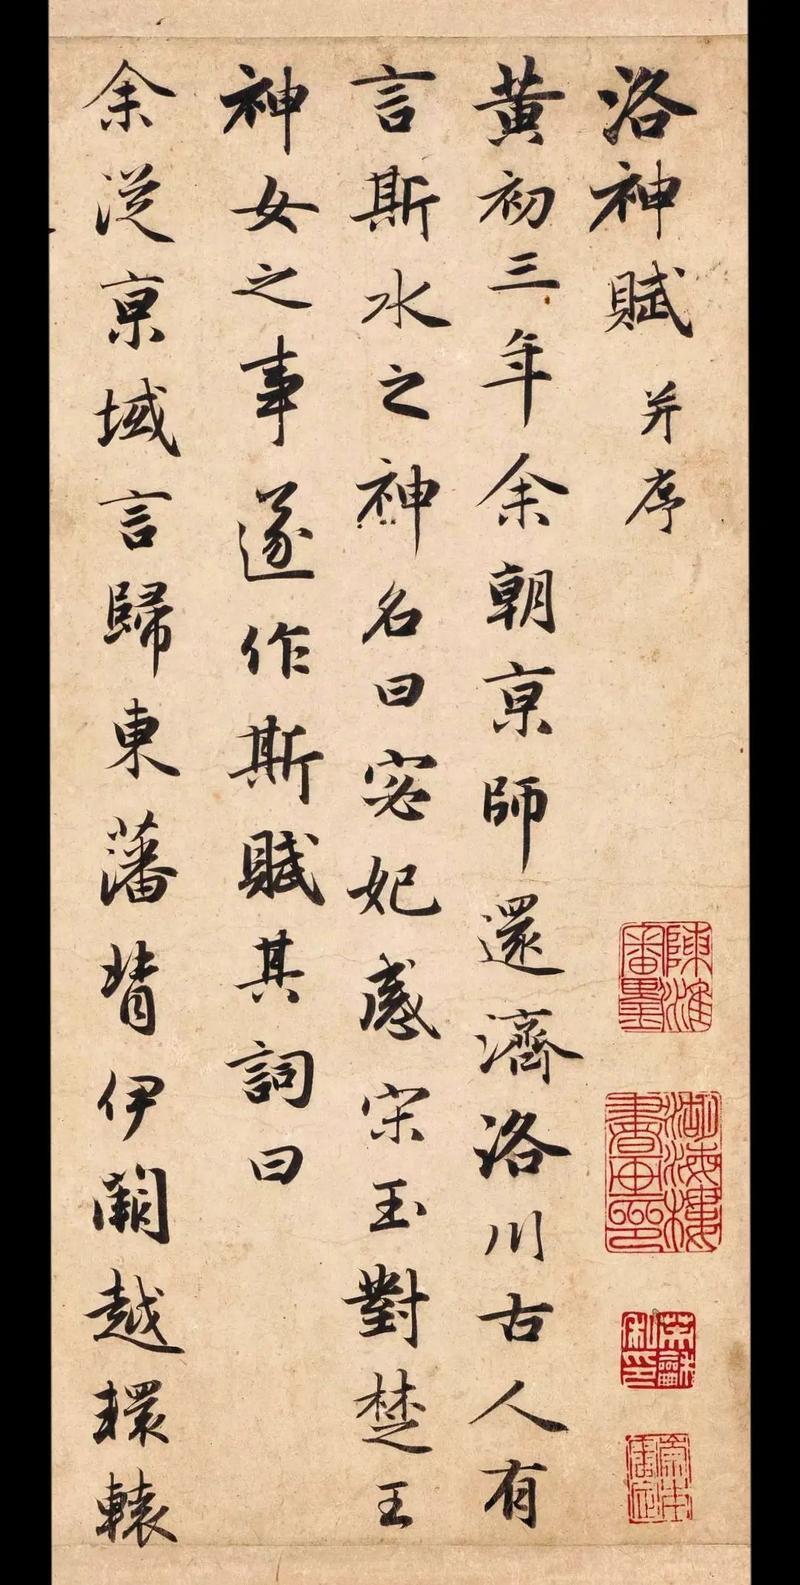 洛神賦并序
黄初三年余朝亰師還濟洛川古人有
言斯水之神名曰宓妃感宋玉對楚王
神女之事遂作斯賦其詞曰
余從亰域言歸東藩背伊闕越轘轅
陳淮